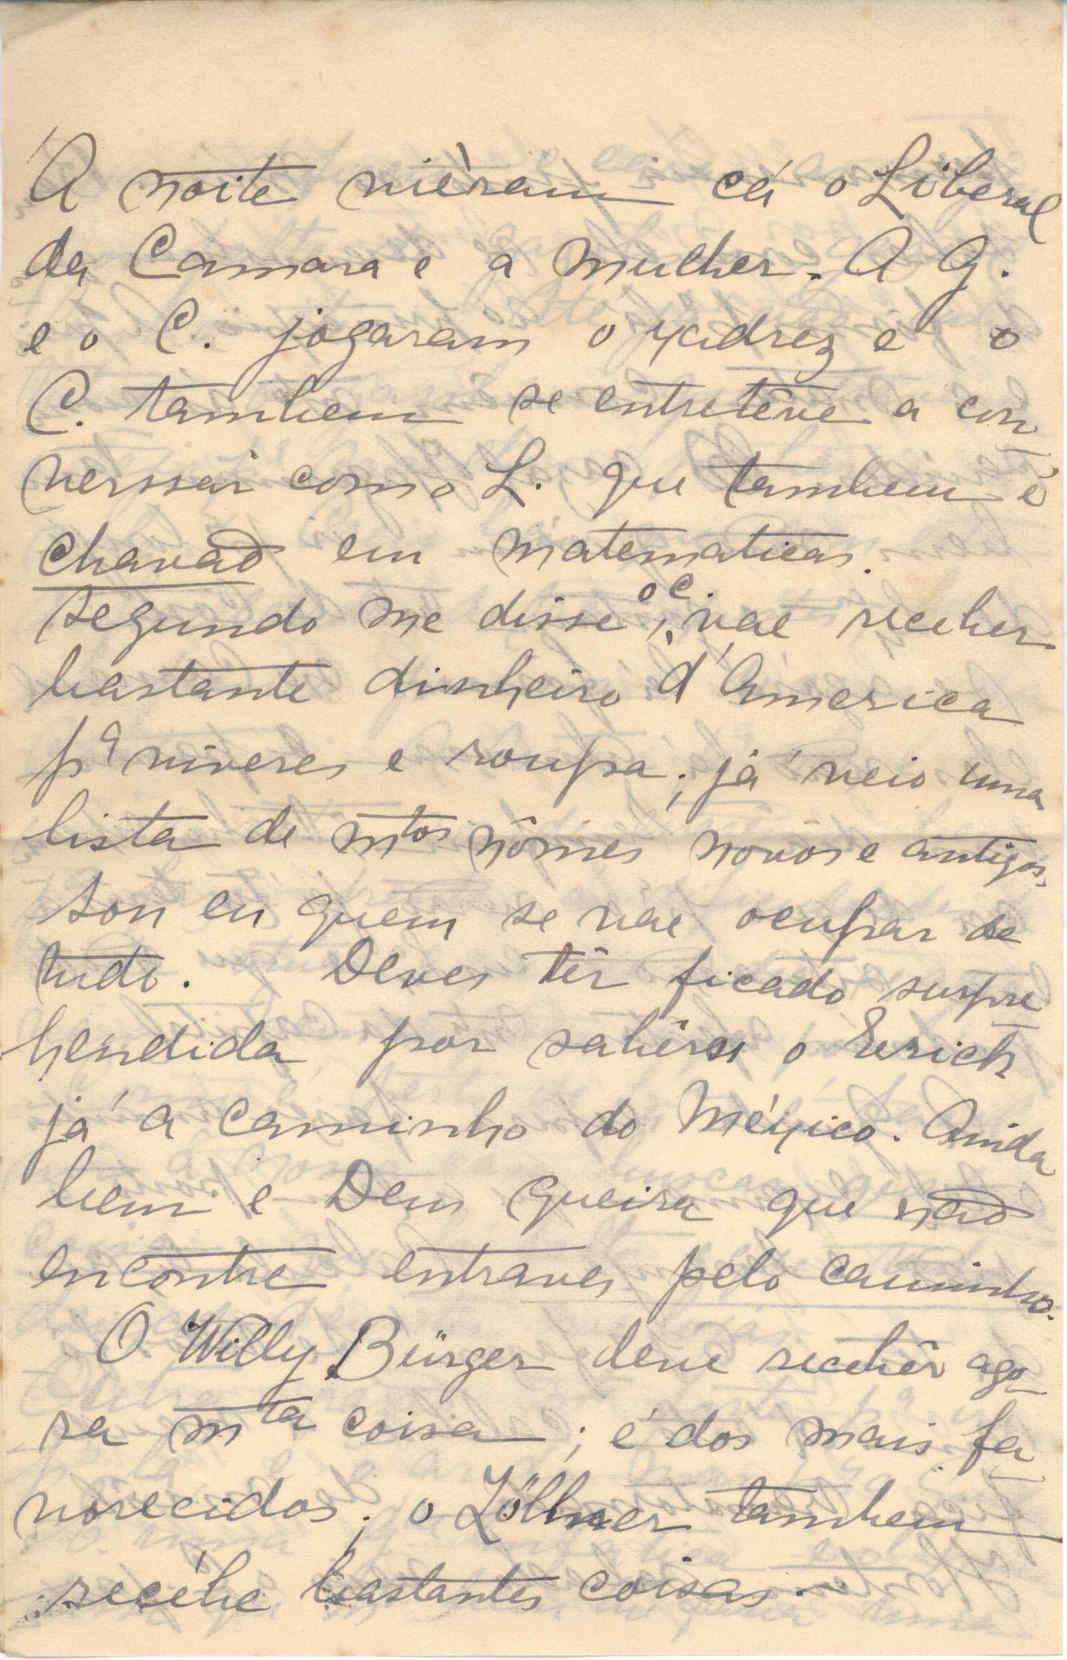 Á noite vièram cá o Liberal
da Camara e a Mulher. A G.
e o C. jogaram o xadrez e o
C. tambem se entretêve a con
verssar com o L. que tambem é
chavão em matematicas.
Segundo me disse o C., vae receber
bastante dinheiro d'America
pª viveres e roupa; já veio uma
lista de mtos nômes novos e antigos.
Sou eu quem se vae ocupar de
tudo. Deves têr ficado surpre
hendida por sabêres o Erich
já a caminho do México. Ainda
bem e Deus queira que não
encontre entraves pelo caminho.
O Willy Bürger deve recebêr ago-
ra mta coisa; é dos mais fa
vorecidos; o Zöllner tambem
recébe bastantes coisas.